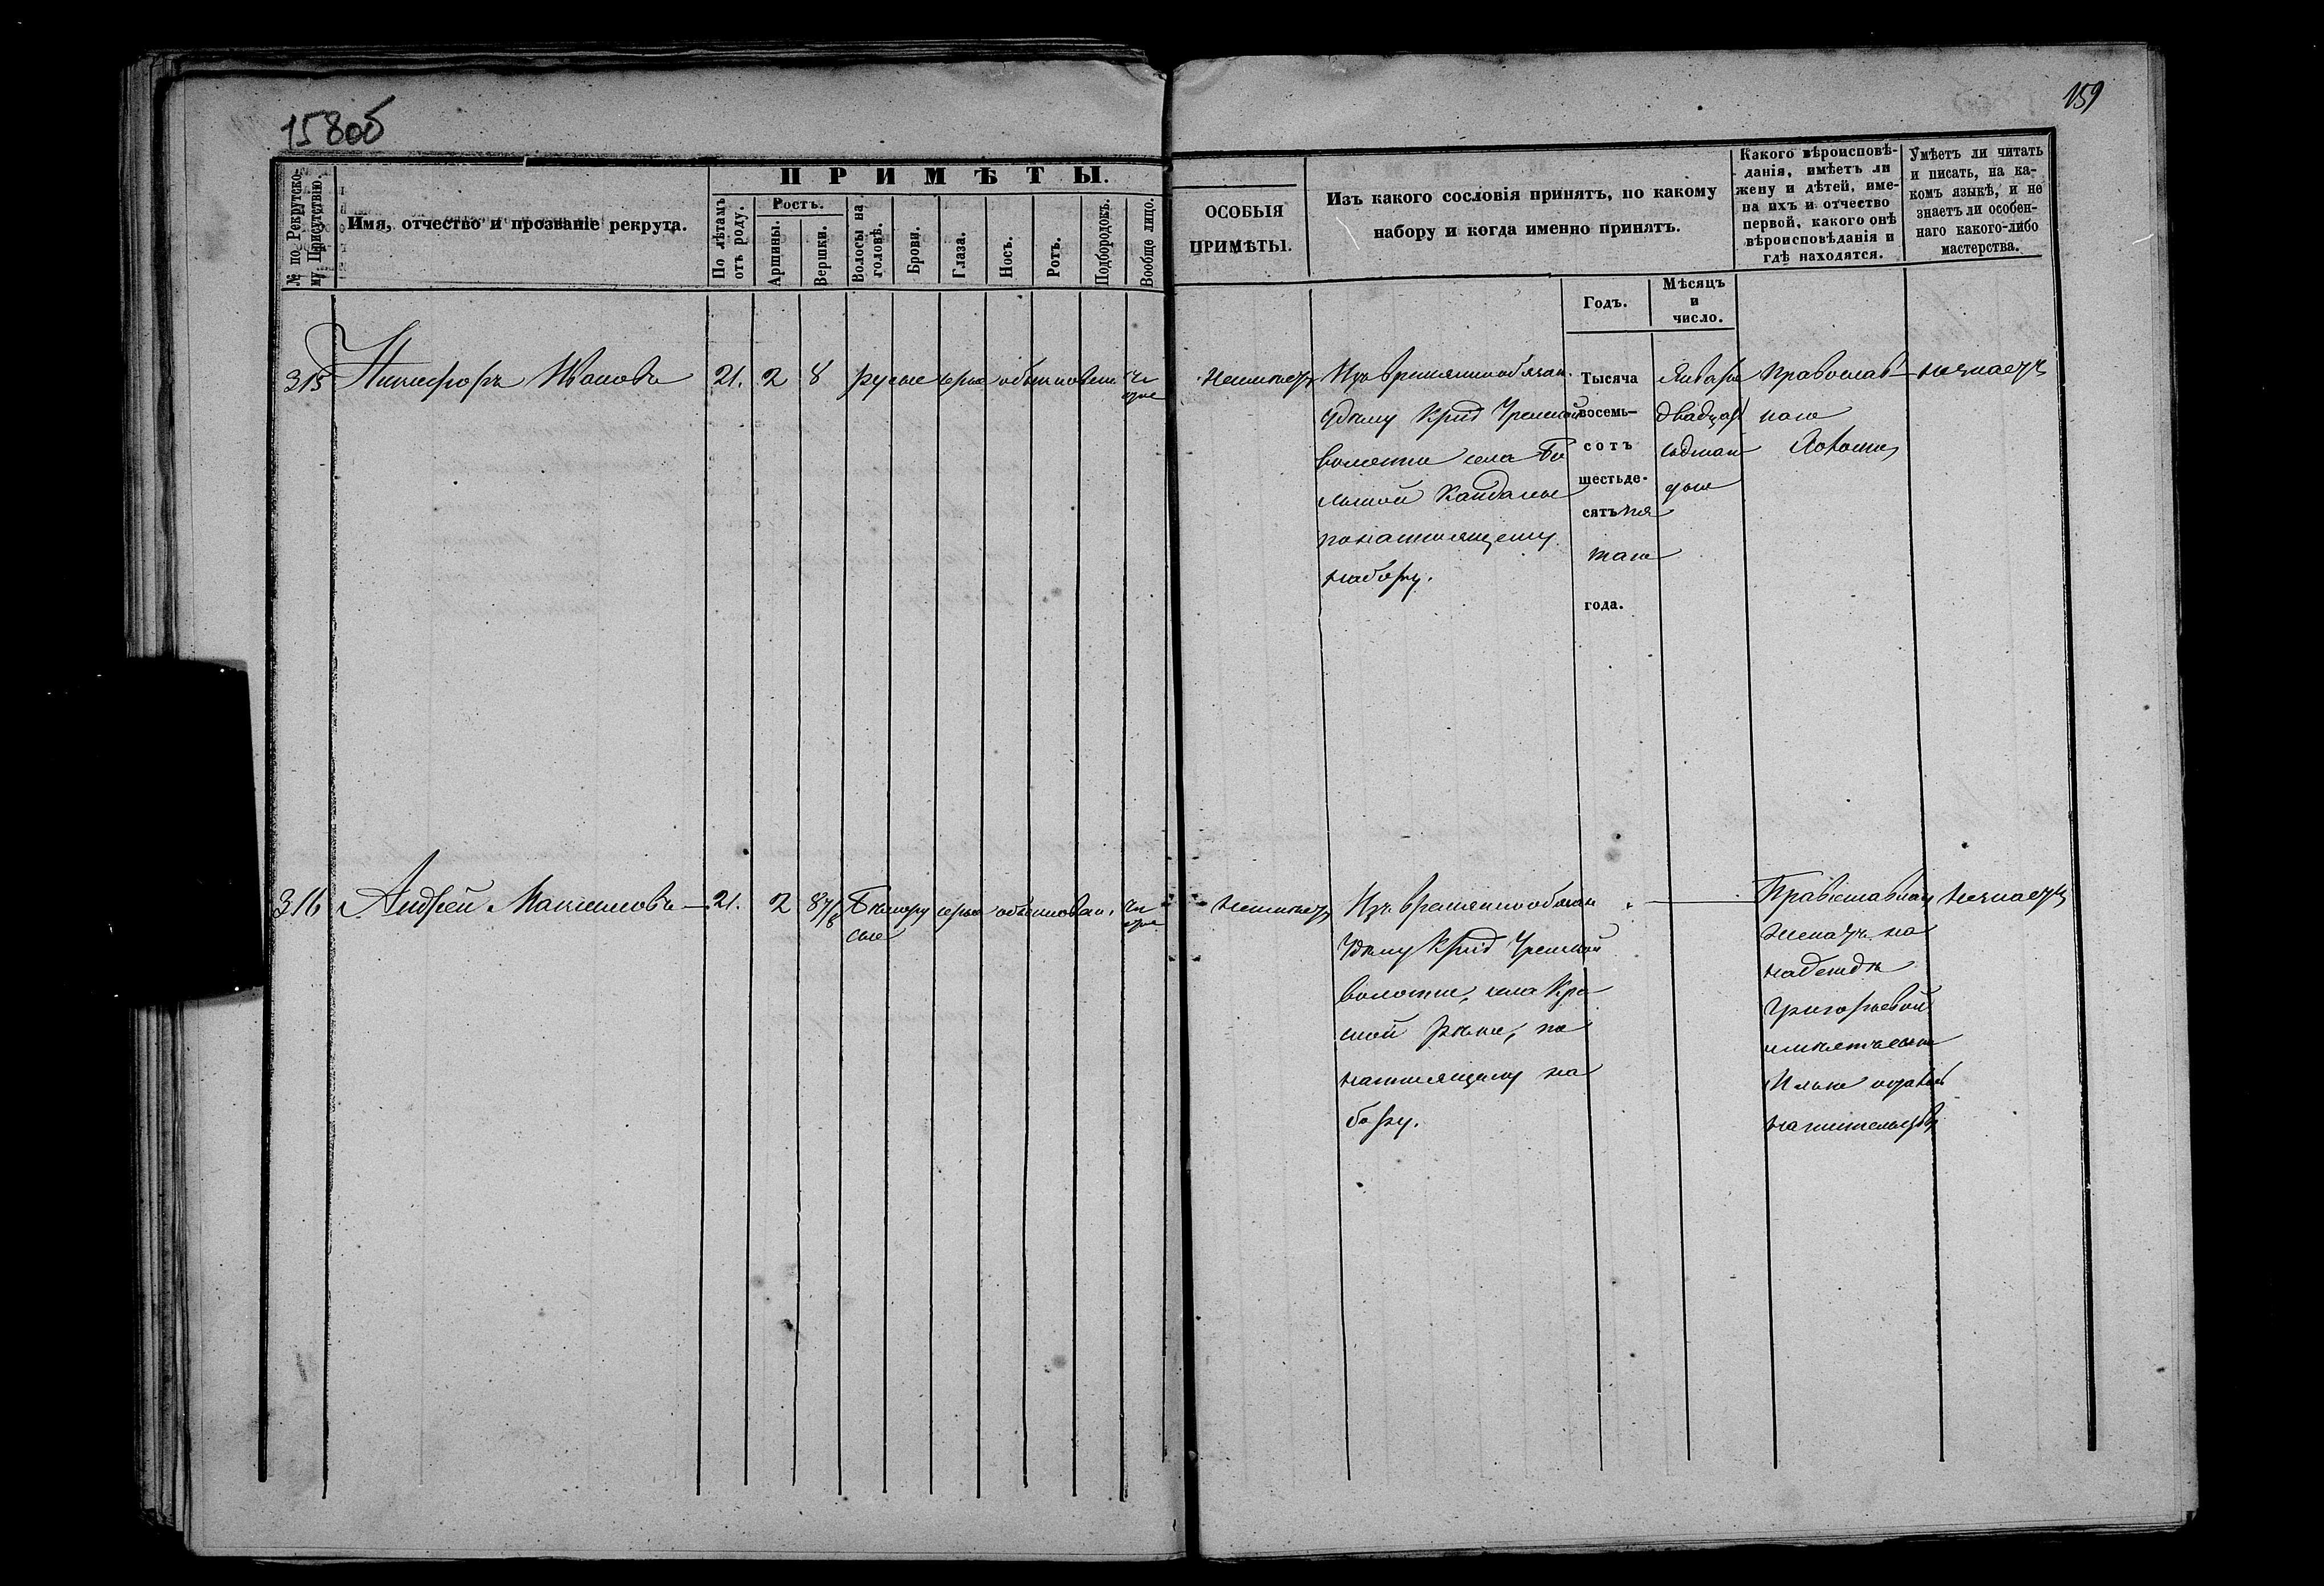 158об
159
№ по Рекрутско-
му Присутствію.
Имя, отчество и прозваніе рекрута.
ПРИМѢТЫ.
По лѣтамъ
отъ роду.
Ростъ.
Аршины.
Вершки.
Волосы на
головѣ.
Брови.
Глаза.
Носъ.
Ротъ.
Подбородокъ.
Вообще лицо.
ОСОБЫЯ
ПРИМѢТЫ.
Изъ какого сословія принятъ, по какому
набору и когда именно принятъ.
Годъ.
Мѣсяцъ
и
число.
Какого вѣроисповѣ-
данія, имѣетъ ли
жену и дѣтей, име-
на ихъ и отчество
первой, какого онѣ
вѣроисповѣданія и
гдѣ находятся.
Умѣетъ ли читать
и писать, на ка-
комъ языкѣ, и не
знаетъ ли особен-
наго какого-либо
мастерства.
315 Никифоръ Ивановъ 21. 2 8 русые серые обыкновенн чи
стое
неимѣетъ
Изъ временнообязан.
Удѣлу Крид
волости села Бо
льшой Кандалы
по настоящему
набору.
Тысяча
восемь-
сотъ
шестьде-
сятъ пя
таго
года.
Января
двадцат
седмаго
дня
Православ
наго
Холостъ
незнаетъ
316 Андрей Максимовъ 21. 2 8 7/8 Бѣлору
сые
серые обыкновен. чи
стое
неимѣетъ
Изъ временнообязан
Удѣлу Крид
волости, села Кра
сной рѣки, по
настоящему на
бору.
Православнаго
женатъ на
надеждѣ
Григорьевой
имѣетъ сына
Илью
на жительствѣ
незнаетъ